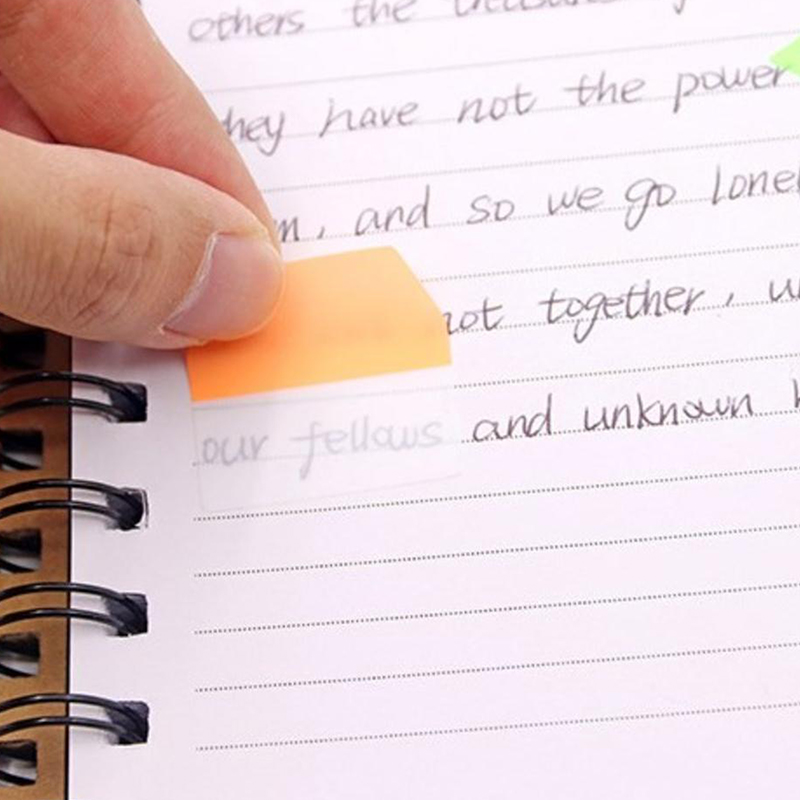 others the
they have not the power
and so we go
not together,
our fellows and unknown